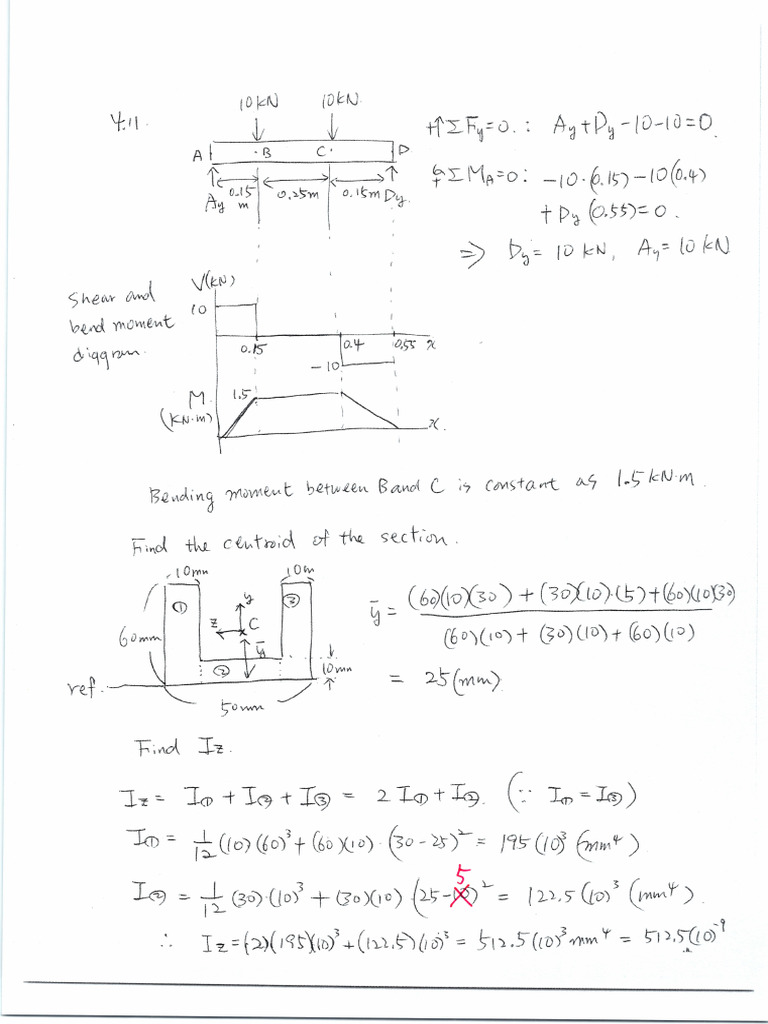 4.11.
10 kN 10 kN.
A B C D
Ay 0.15 m 0.25m 0.15m Dy.
+↑ΣFy=0. : Ay+Dy-10-10=0.
ΣMA=0 : -10·(0.15)-10(0.4)
+Dy(0.55)=0.
⇒ Dy=10 kN, Ay=10 kN
Shear and
bend moment
diagram.
V(kN)
10
0.15 0.4 0.55 x
-10
M
(kN·m)
1.5
x.
Bending moment between B and C is constant as 1.5 kN·m.
Find the centroid of the section.
10mm 10m
① y ③
z C
60mm ȳ
② 10mm
ref.
50mm
ȳ = ((60)(10)(30)+(30)(10)·(5)+(60)(10)(30)) / ((60)(10)+(30)(10)+(60)(10))
= 25(mm)
Find Iz.
Iz = I① + I② + I③ = 2 I① + I②. (∵ I① = I③)
I① = 1/12 (10)(60)³+(60)(10)·(30-25)² = 195(10)³ (mm⁴)
I② = 1/12 (30)·(10)³+(30)(10)·(25-5)² = 122.5(10)³ (mm⁴)
∴ Iz=(2)(195)(10)³+(122.5)(10)³ = 512.5(10)³mm⁴ = 512.5(10)⁻⁹